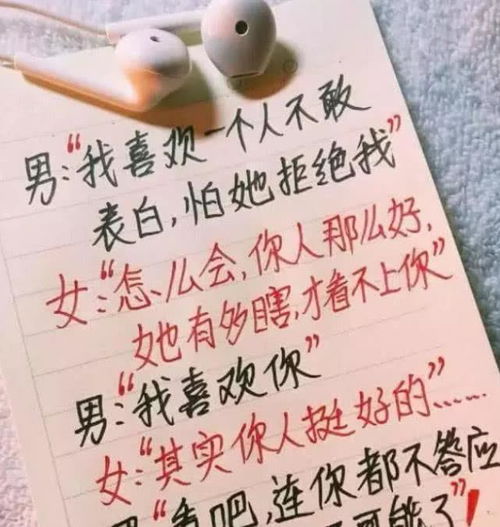 男:“我喜欢一个人不敢
表白,怕她拒绝我”
女:“怎么会,你人那么好,
她有多瞎,才看不上你”
男:“我喜欢你”
女:“其实你人挺好的”……
男:“看吧,连你都不答应
可能了”!